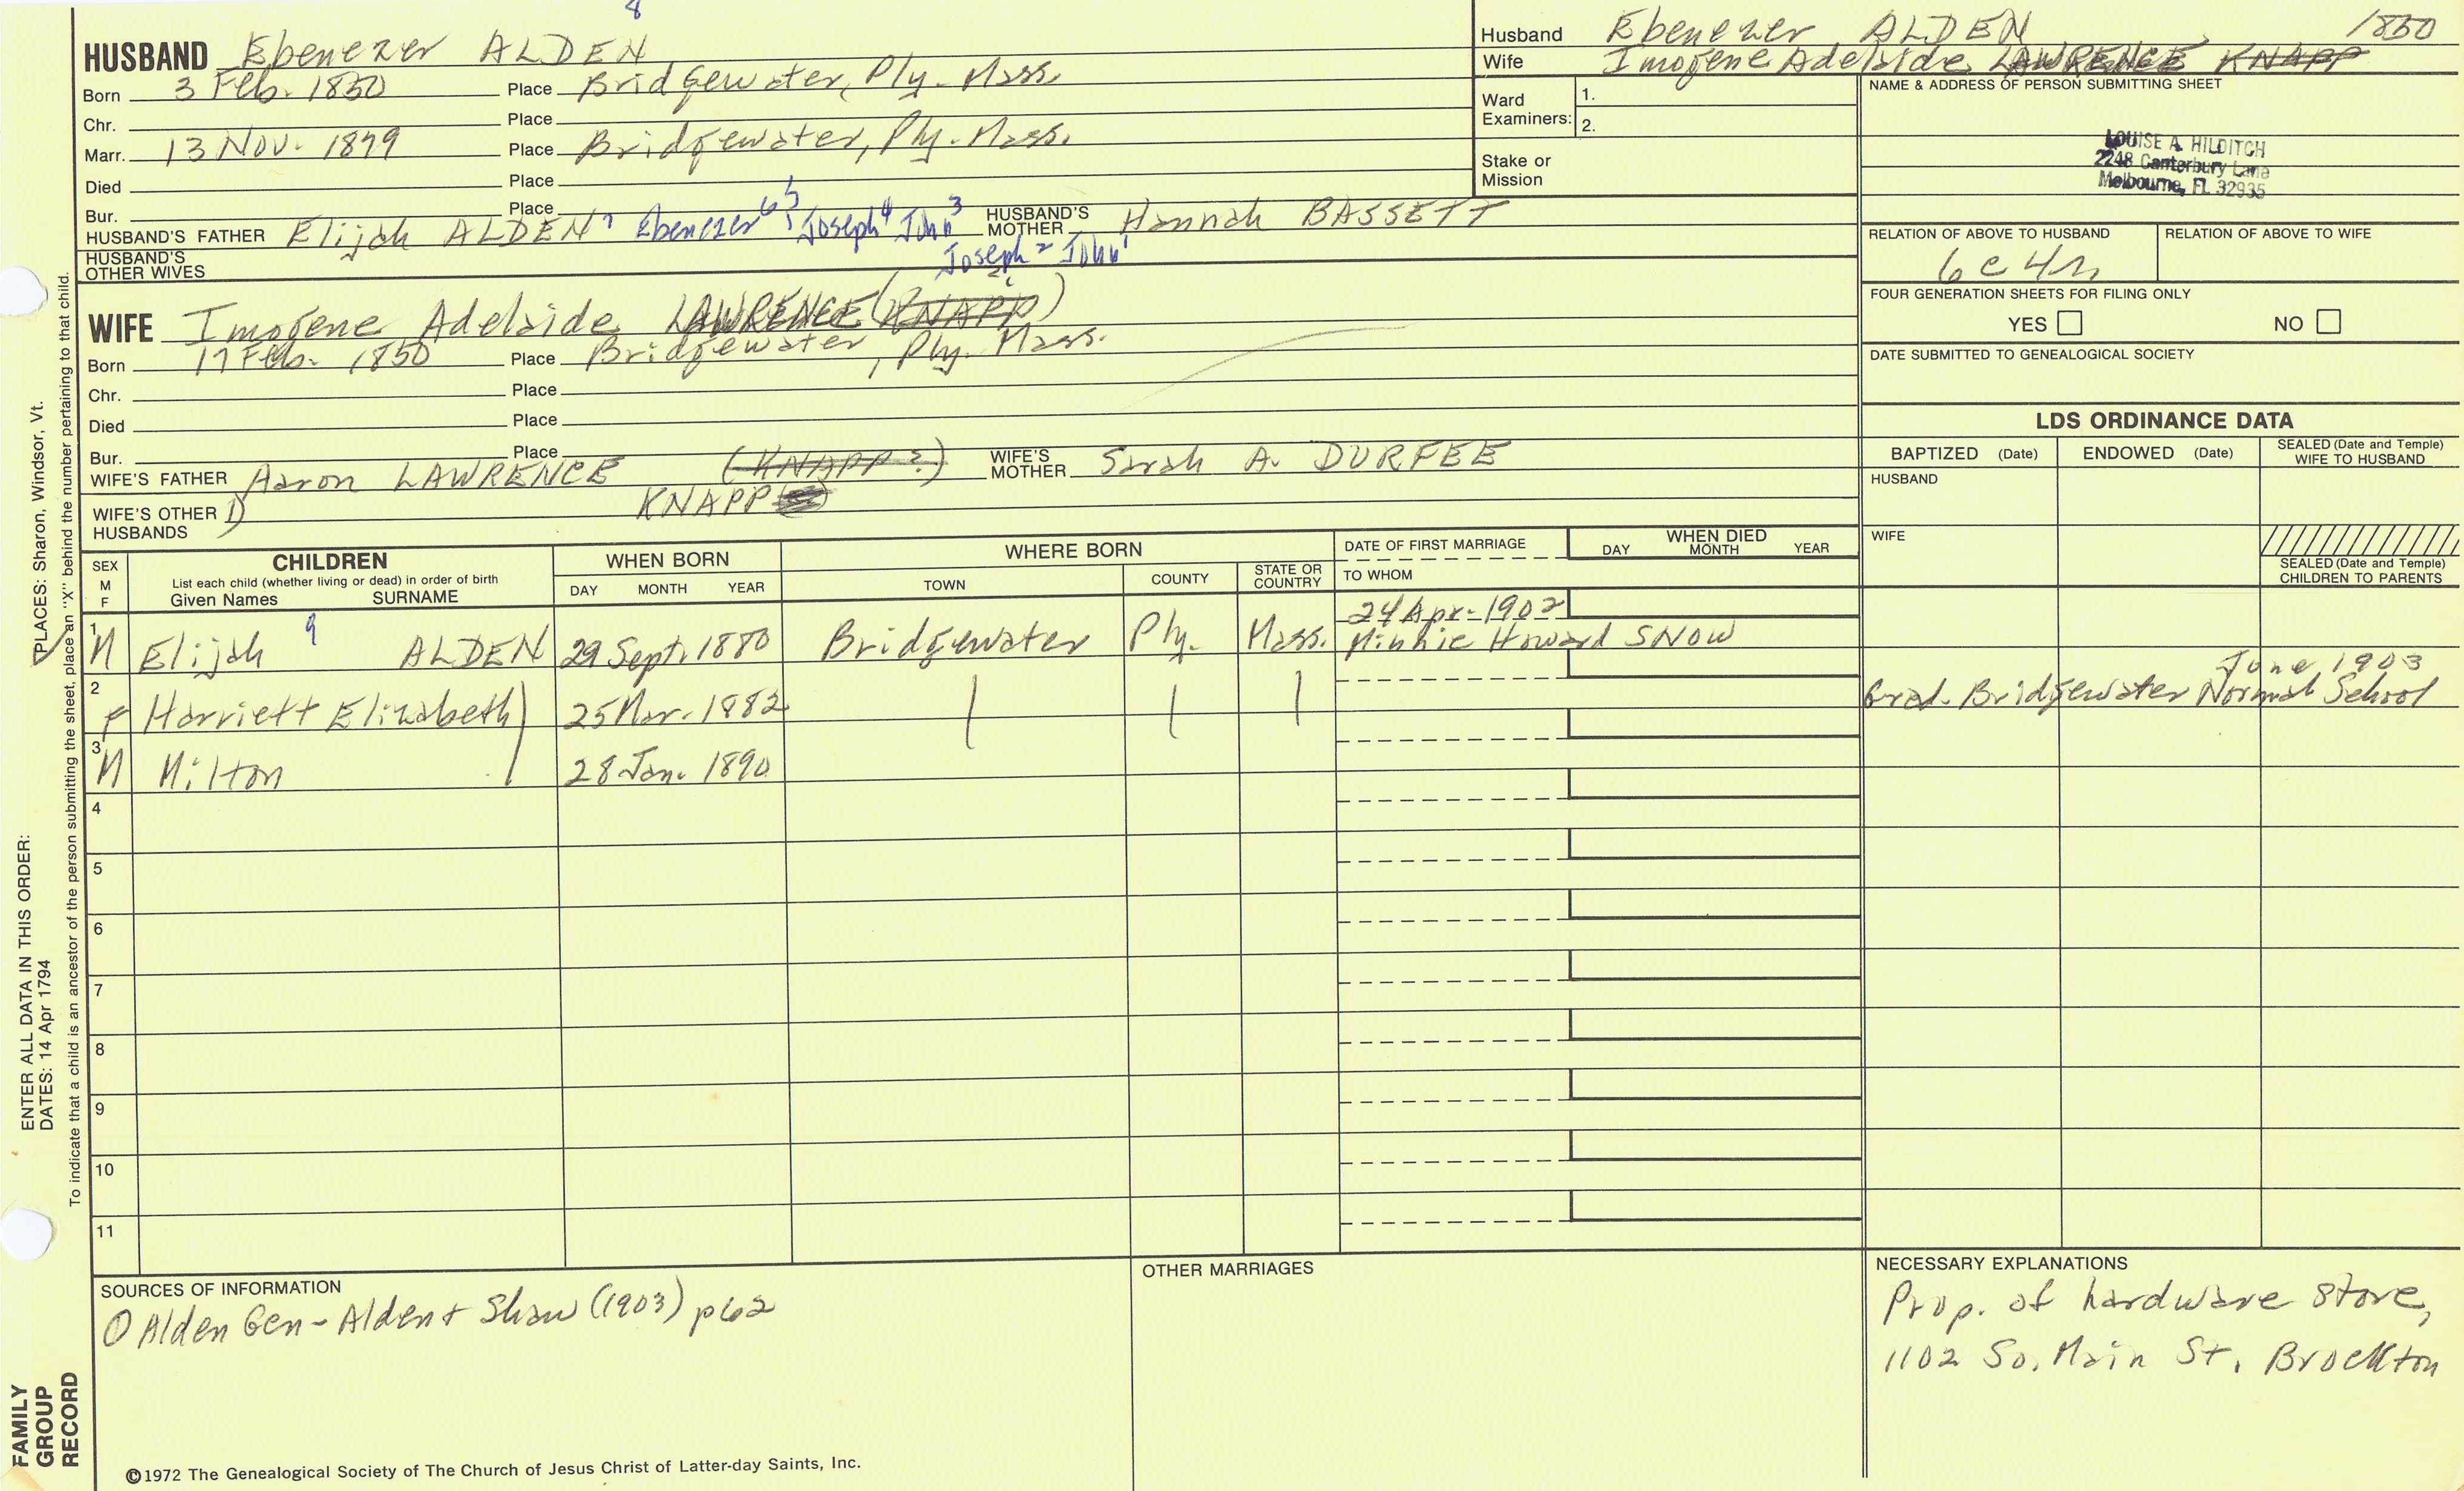 8
HUSBAND Ebenezer ALDEN
Born 3 Feb. 1850 Place Bridgewater, Ply. Mass.
Chr. Place
Marr. 13 Nov. 1879 Place Bridgewater, Ply. Mass.
Died Place
Bur. Place
HUSBAND'S FATHER Elijah ALDEN 7 Ebenezer 6 5 Joseph 4 John 3 HUSBAND'S MOTHER Hannah BASSETT
Joseph 2 John 1
HUSBAND'S OTHER WIVES
Husband Ebenezer ALDEN 1850
Wife Imogene Adelaide LAWRENCE KNAPP
Ward Examiners: 1.
2.
Stake or Mission
NAME & ADDRESS OF PERSON SUBMITTING SHEET
LOUISE A. HILDITCH
2248 Canterbury Lane
Melbourne, FL 32935
RELATION OF ABOVE TO HUSBAND RELATION OF ABOVE TO WIFE
6c4r
FOUR GENERATION SHEETS FOR FILING ONLY
YES NO
DATE SUBMITTED TO GENEALOGICAL SOCIETY
WIFE Imogene Adelaide LAWRENCE (KNAPP)
Born 17 Feb. 1850 Place Bridgewater, Ply. Mass.
Chr. Place
Died Place
Bur. Place
WIFE'S FATHER Aaron LAWRENCE (KNAPP?) WIFE'S MOTHER Sarah A. DURFEE
WIFE'S OTHER HUSBANDS 1) KNAPP
LDS ORDINANCE DATA
BAPTIZED (Date) ENDOWED (Date) SEALED (Date and Temple) WIFE TO HUSBAND
HUSBAND
WIFE
SEALED (Date and Temple) CHILDREN TO PARENTS
SEX M F
CHILDREN
List each child (whether living or dead) in order of birth
Given Names SURNAME
WHEN BORN
DAY MONTH YEAR
WHERE BORN
TOWN COUNTY STATE OR COUNTRY
DATE OF FIRST MARRIAGE
TO WHOM
WHEN DIED
DAY MONTH YEAR
24 Apr. 1902
1 M Elijah 9 ALDEN 29 Sept. 1880 Bridgewater Ply. Mass. Minnie Howard SNOW
June 1903
2 F Harriett Elizabeth 25 Mar. 1882 Grad. Bridgewater Normal School
3 M Milton 28 Jan. 1890
4
5
6
7
8
9
10
11
SOURCES OF INFORMATION
① Alden Gen - Alden + Shaw (1903) p62
OTHER MARRIAGES
NECESSARY EXPLANATIONS
Prop. of hardware store,
1102 So. Main St, Brockton
©1972 The Genealogical Society of The Church of Jesus Christ of Latter-day Saints, Inc.
FAMILY GROUP RECORD
ENTER ALL DATA IN THIS ORDER:
DATES: 14 Apr 1794
PLACES: Sharon, Windsor, Vt.
To indicate that a child is an ancestor of the person submitting the sheet, place an "X" behind the number pertaining to that child.